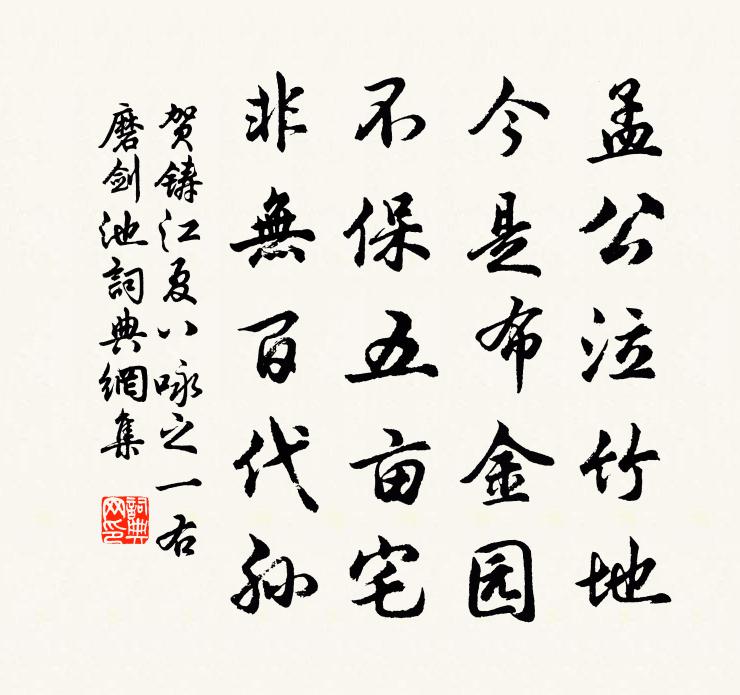 孟公泣竹地
今是布金园
不保五亩宅
非無百代孙
贺鑄江夏八咏之一右
磨劍池詞典網集
詞典网印